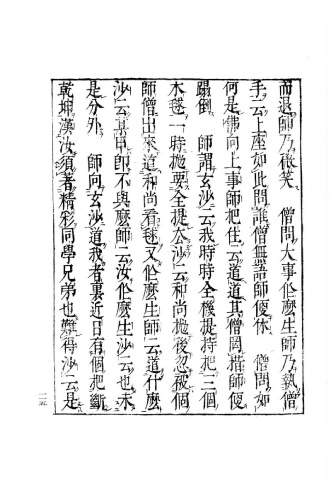 而退師乃微笑　僧問大事作麼生師乃執僧
手云上座如此問誰僧無語師便休　僧問如
何是佛向上事師把住云道道其僧罔措師便
蹋倒　師謂玄沙云我時時全機提持把三個
木毬一時拋要全提去沙云和尚拋後忽被個
師僧出來道和尚看毬又作麼生師云道什麼
沙云某甲即不與麼師云汝作麼生沙云也未
是分外　師向玄沙道我者裏近日有個把斷
乾坤漢汝須著精彩同學兄弟也難得沙云是